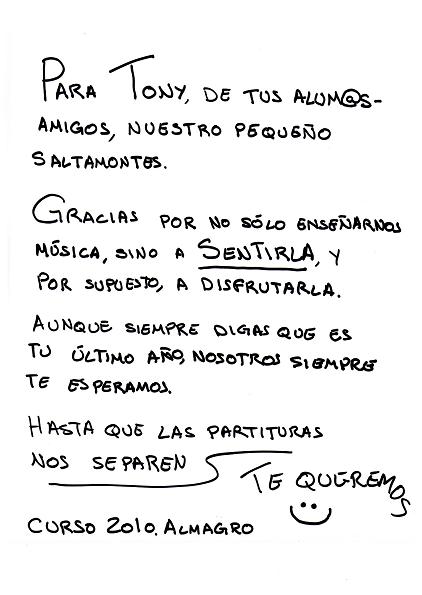 PARA TONY, DE TUS ALUM@S-
AMIGOS, NUESTRO PEQUEÑO
SALTAMONTES.
GRACIAS POR NO SÓLO ENSEÑARNOS
MÚSICA, SINO A SENTIRLA, Y
POR SUPUESTO, A DISFRUTARLA.
AUNQUE SIEMPRE DIGAS QUE ES
TU ÚLTIMO AÑO, NOSOTROS SIEMPRE
TE ESPERAMOS.
HASTA QUE LAS PARTITURAS
NOS SEPAREN
TE QUEREMOS
CURSO 2010. ALMAGRO